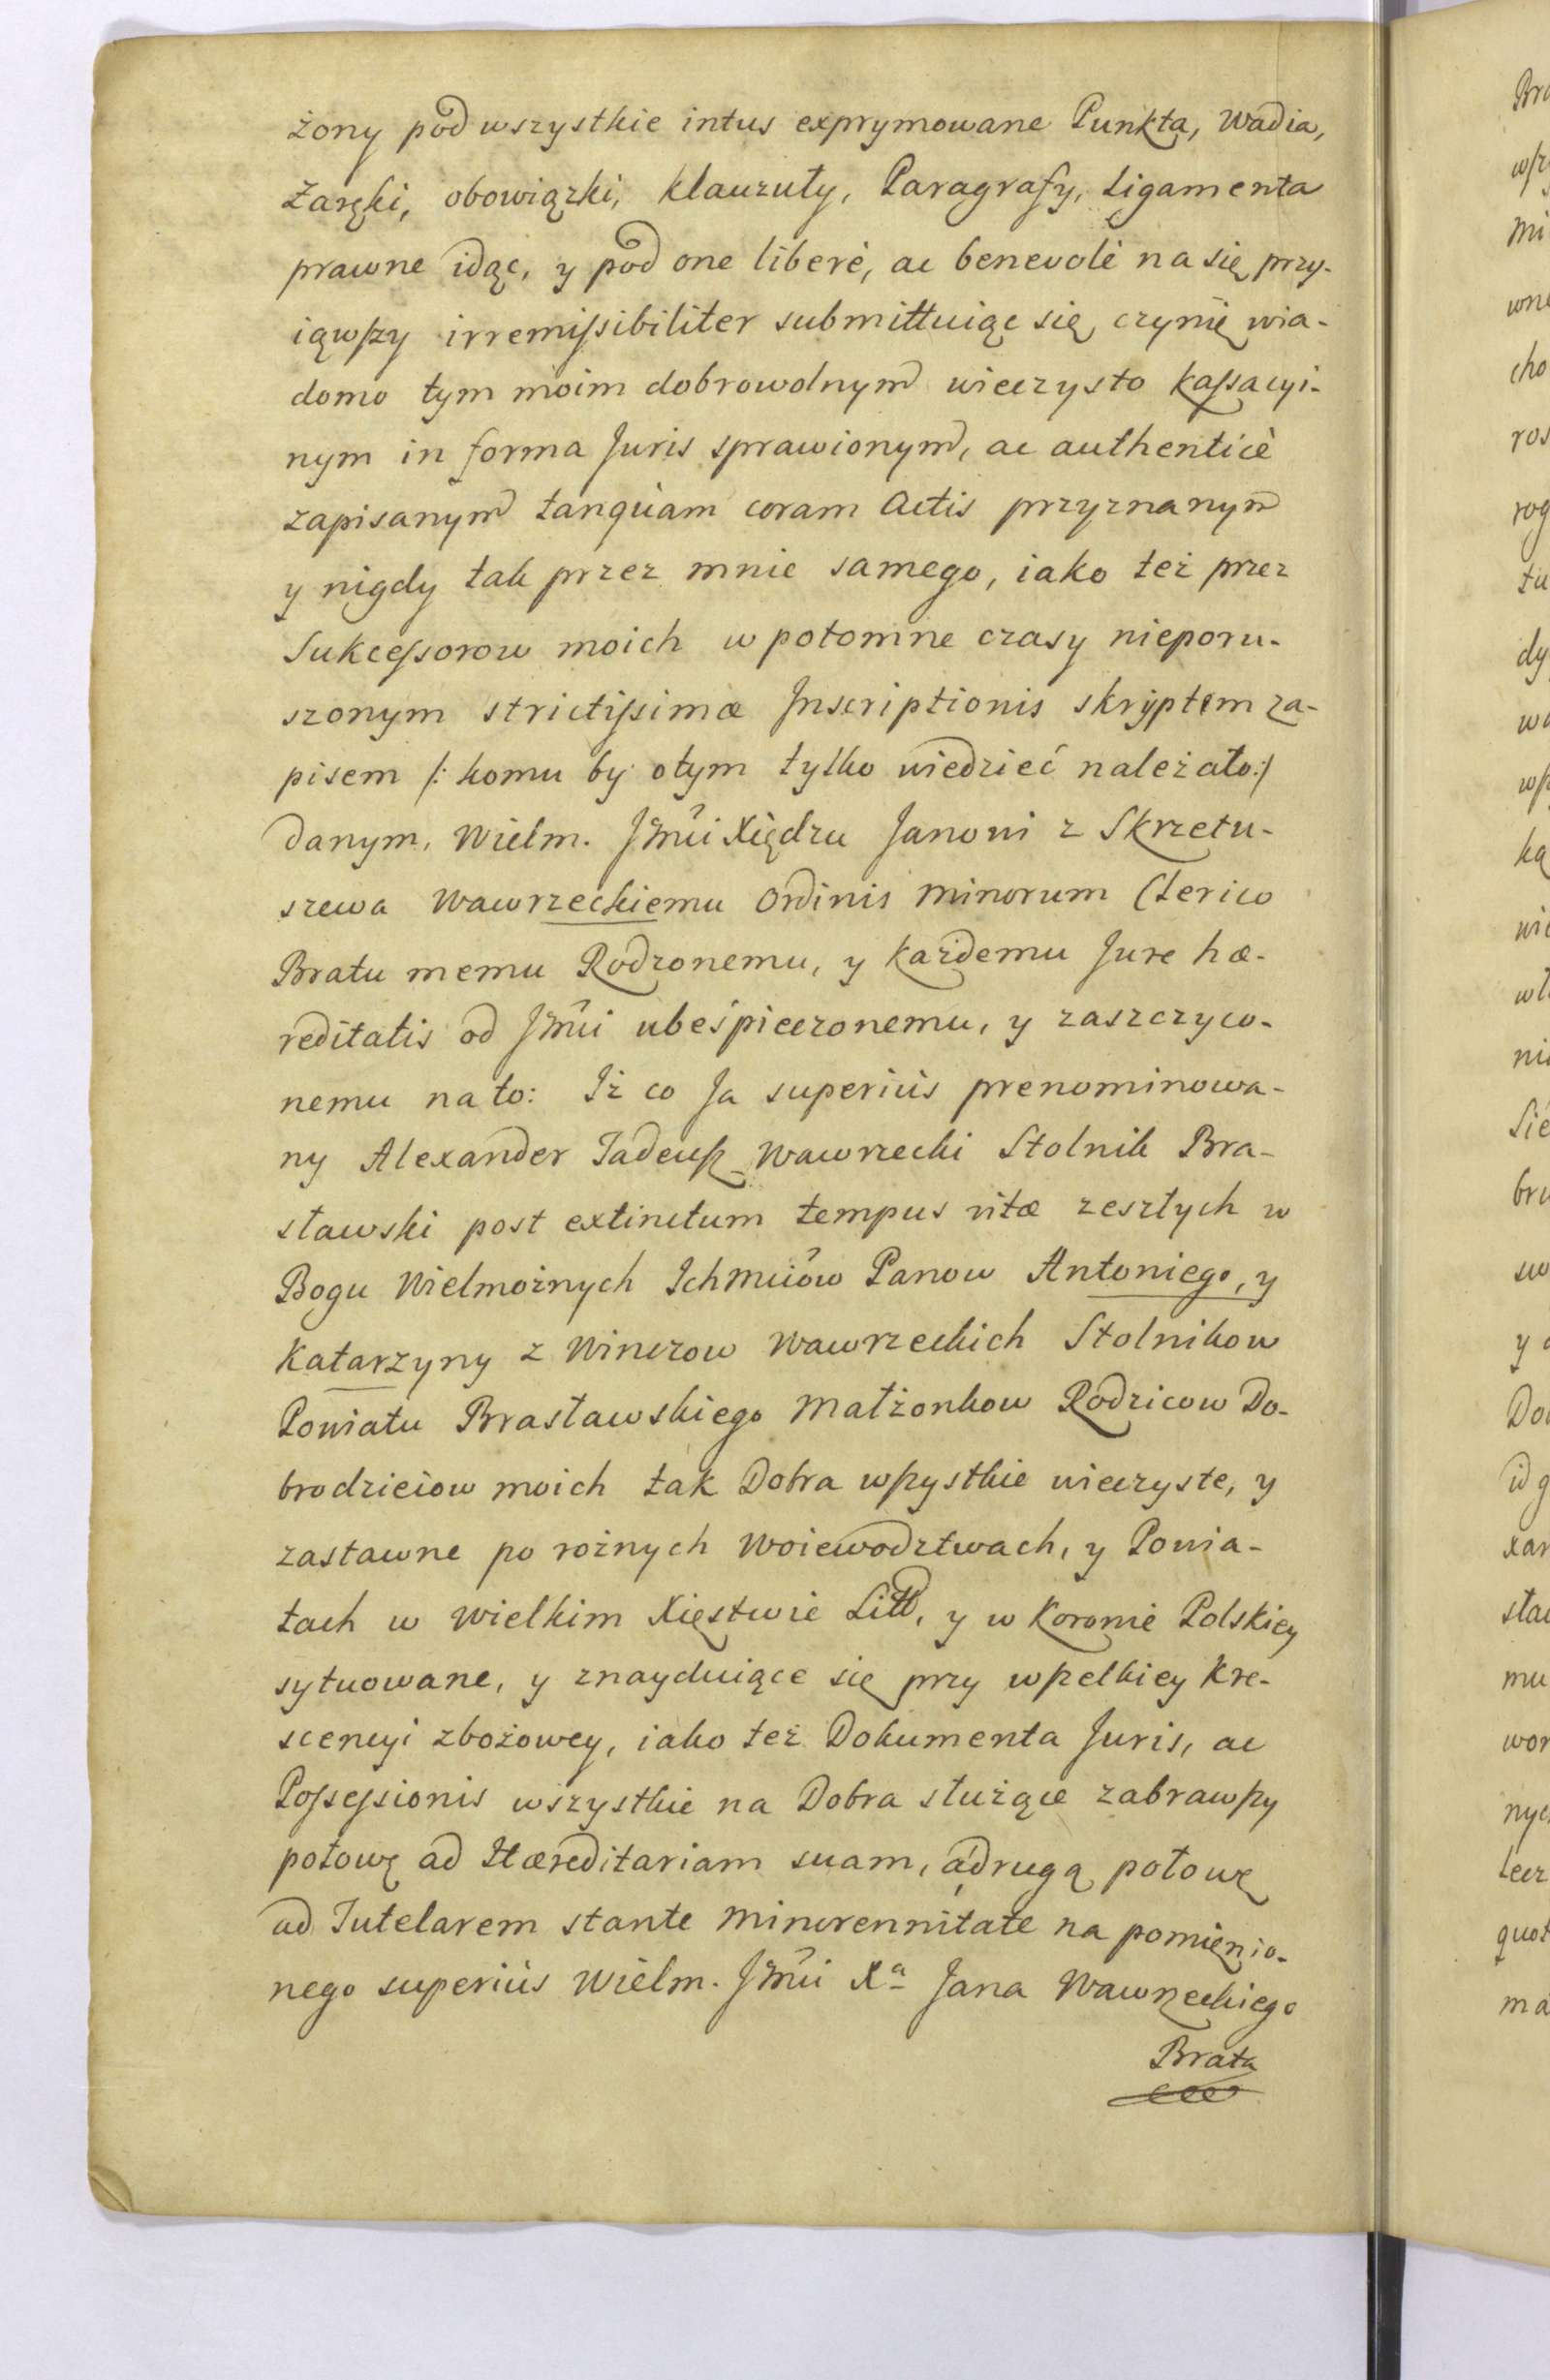 żony pod wszystkie intus exprymowane Punkta, Wadia,
Zaręki, obowiązki, Klauzuły, Paragrafy, Ligamenta
prawne idąc, y pod one liberè, ac benevolè na się przy-
iąwszy irremissibiliter submittuiąc się, czynię wia-
domo tym moim dobrowolnym wieczysto kassacyi-
nym in forma Juris sprawionym, ac authenticè
zapisanym tanquam coram Actis przyznanym
y nigdy tak przez mnie samego, iako też przez
Sukcessorow moich w potomne czasy nieporu-
szonym strictissimæ Inscriptionis skryptem za-
pisem /: komu by o tym tylko wiedzieć należało :/
danym, Wielm. Jmći Xiędzu Janowi z Skrzetu-
szewa Wawrzeckiemu Ordinis Minorum Clerico
Bratu memu Rodzonemu, y każdemu Jure hæ-
reditatis od Jmći ubespieczonemu, y zaszczyco-
nemu na to: Iż co Ja superiùs prenominowa-
ny Alexander Tadeusz Wawrzecki Stolnik Bra-
sławski post extinctum tempus vitæ zeszłych w
Bogu Wielmożnych Ichmćiow Panow Antoniego, y
Katarzyny z Winczow Wawrzeckich Stolnikow
Powiatu Brasławskiego Małżonkow Rodzicow Do-
brodzieiow moich tak Dobra wszystkie wieczyste, y
zastawne po rożnych Woiewodztwach, y Powia-
tach w Wielkim Xięstwie Litt, y w Koronie Polskiey
sytuowane, y znayduiące się przy wszelkiey Kre-
scencyi zbożowey, iako też Dokumenta Juris, ac
Possessionis wszystkie na Dobra służące zabrawszy
połowę ad Hæreditariam suam, á drugą połowę
ad Tutelarem stante minorennitate na pomienio-
nego superiùs Wielm. Jmći Xa Jana Wawrzeckiego
Brata